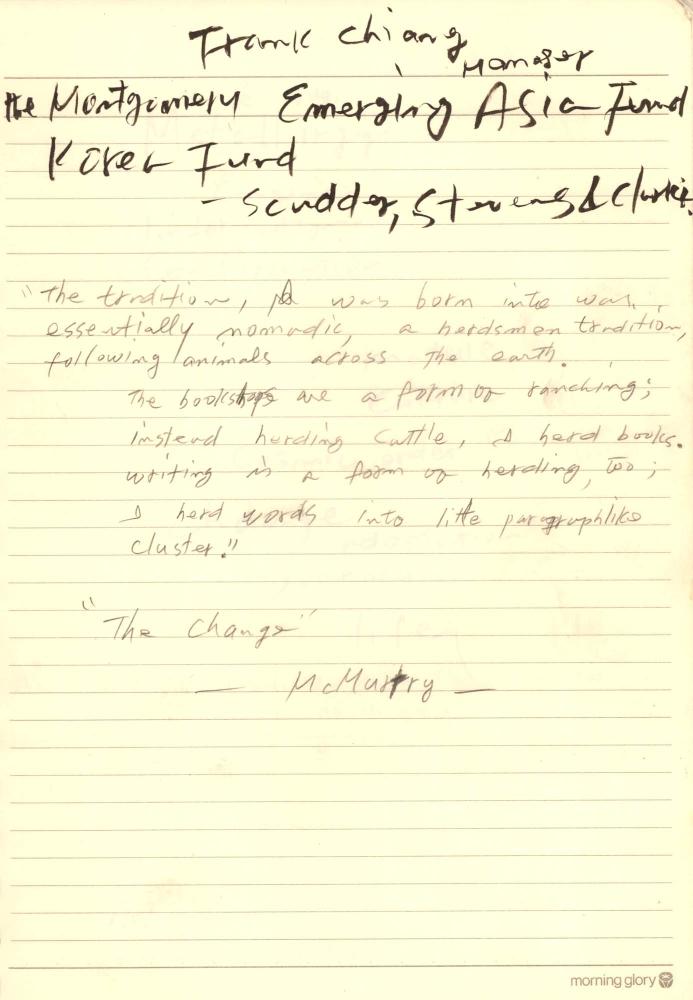 Frank Chiang
Manager
the Montgomery Emerging Asia Fund
Korea Fund
- Scudder, Stevens & Clark
"The tradition, I was born into was
essentially nomadic, a herdsmen tradition,
following animals across the earth.
The bookshops are a form of ranching;
instead herding cattle, I herd books.
writing is a form of herding, too;
I herd words into little paragraphlike
cluster."
"The Change"
— McMurtry —
morning glory